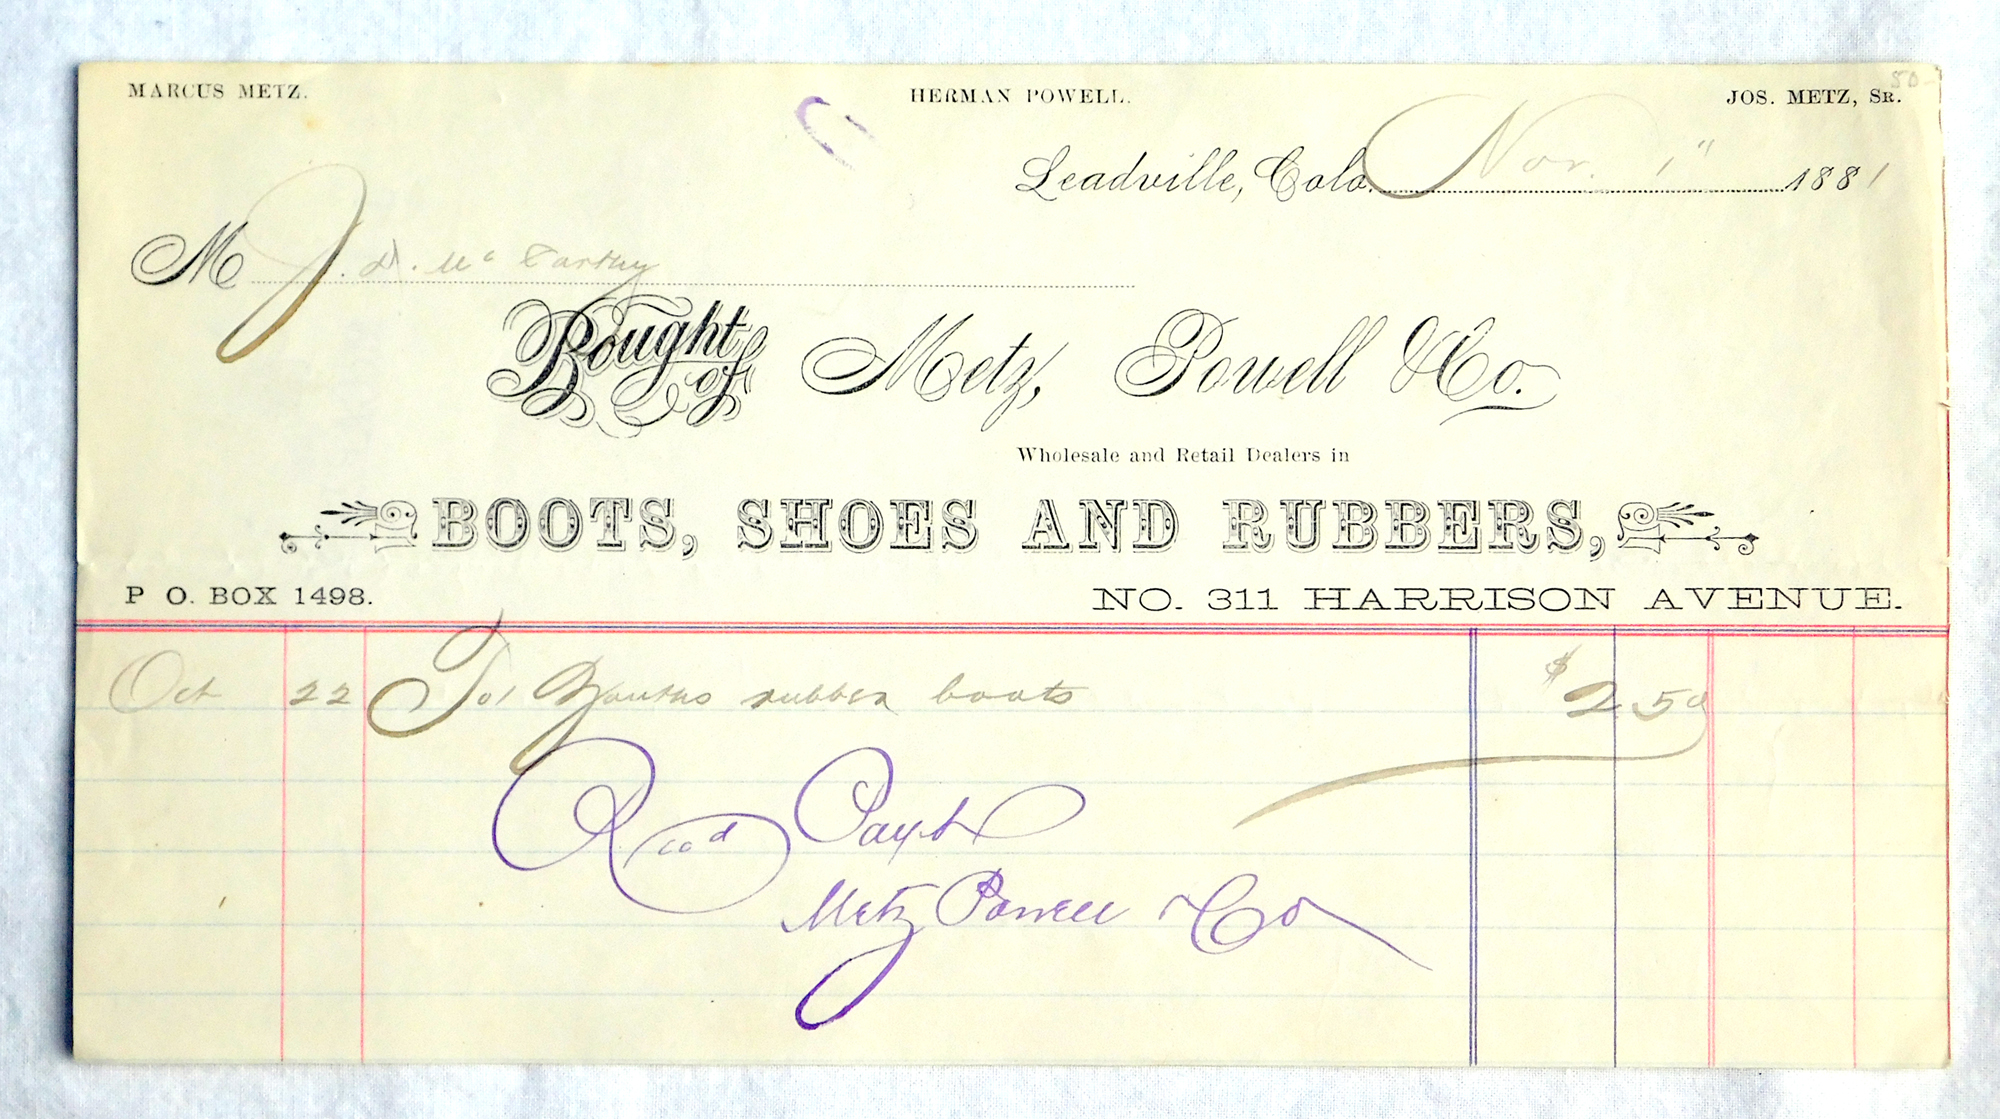 50-
MARCUS METZ. HERMAN POWELL. JOS. METZ, SR.
Leadville, Colo. Nov. 1" 1881
M J. D. Mc Carthy
Bought of Metz, Powell & Co.
Wholesale and Retail Dealers in
BOOTS, SHOES AND RUBBERS,
P O. BOX 1498. NO. 311 HARRISON AVENUE.
Oct 22 To 1 Youths rubber boots $2.50
Recd Payt
Metz Powell & Co